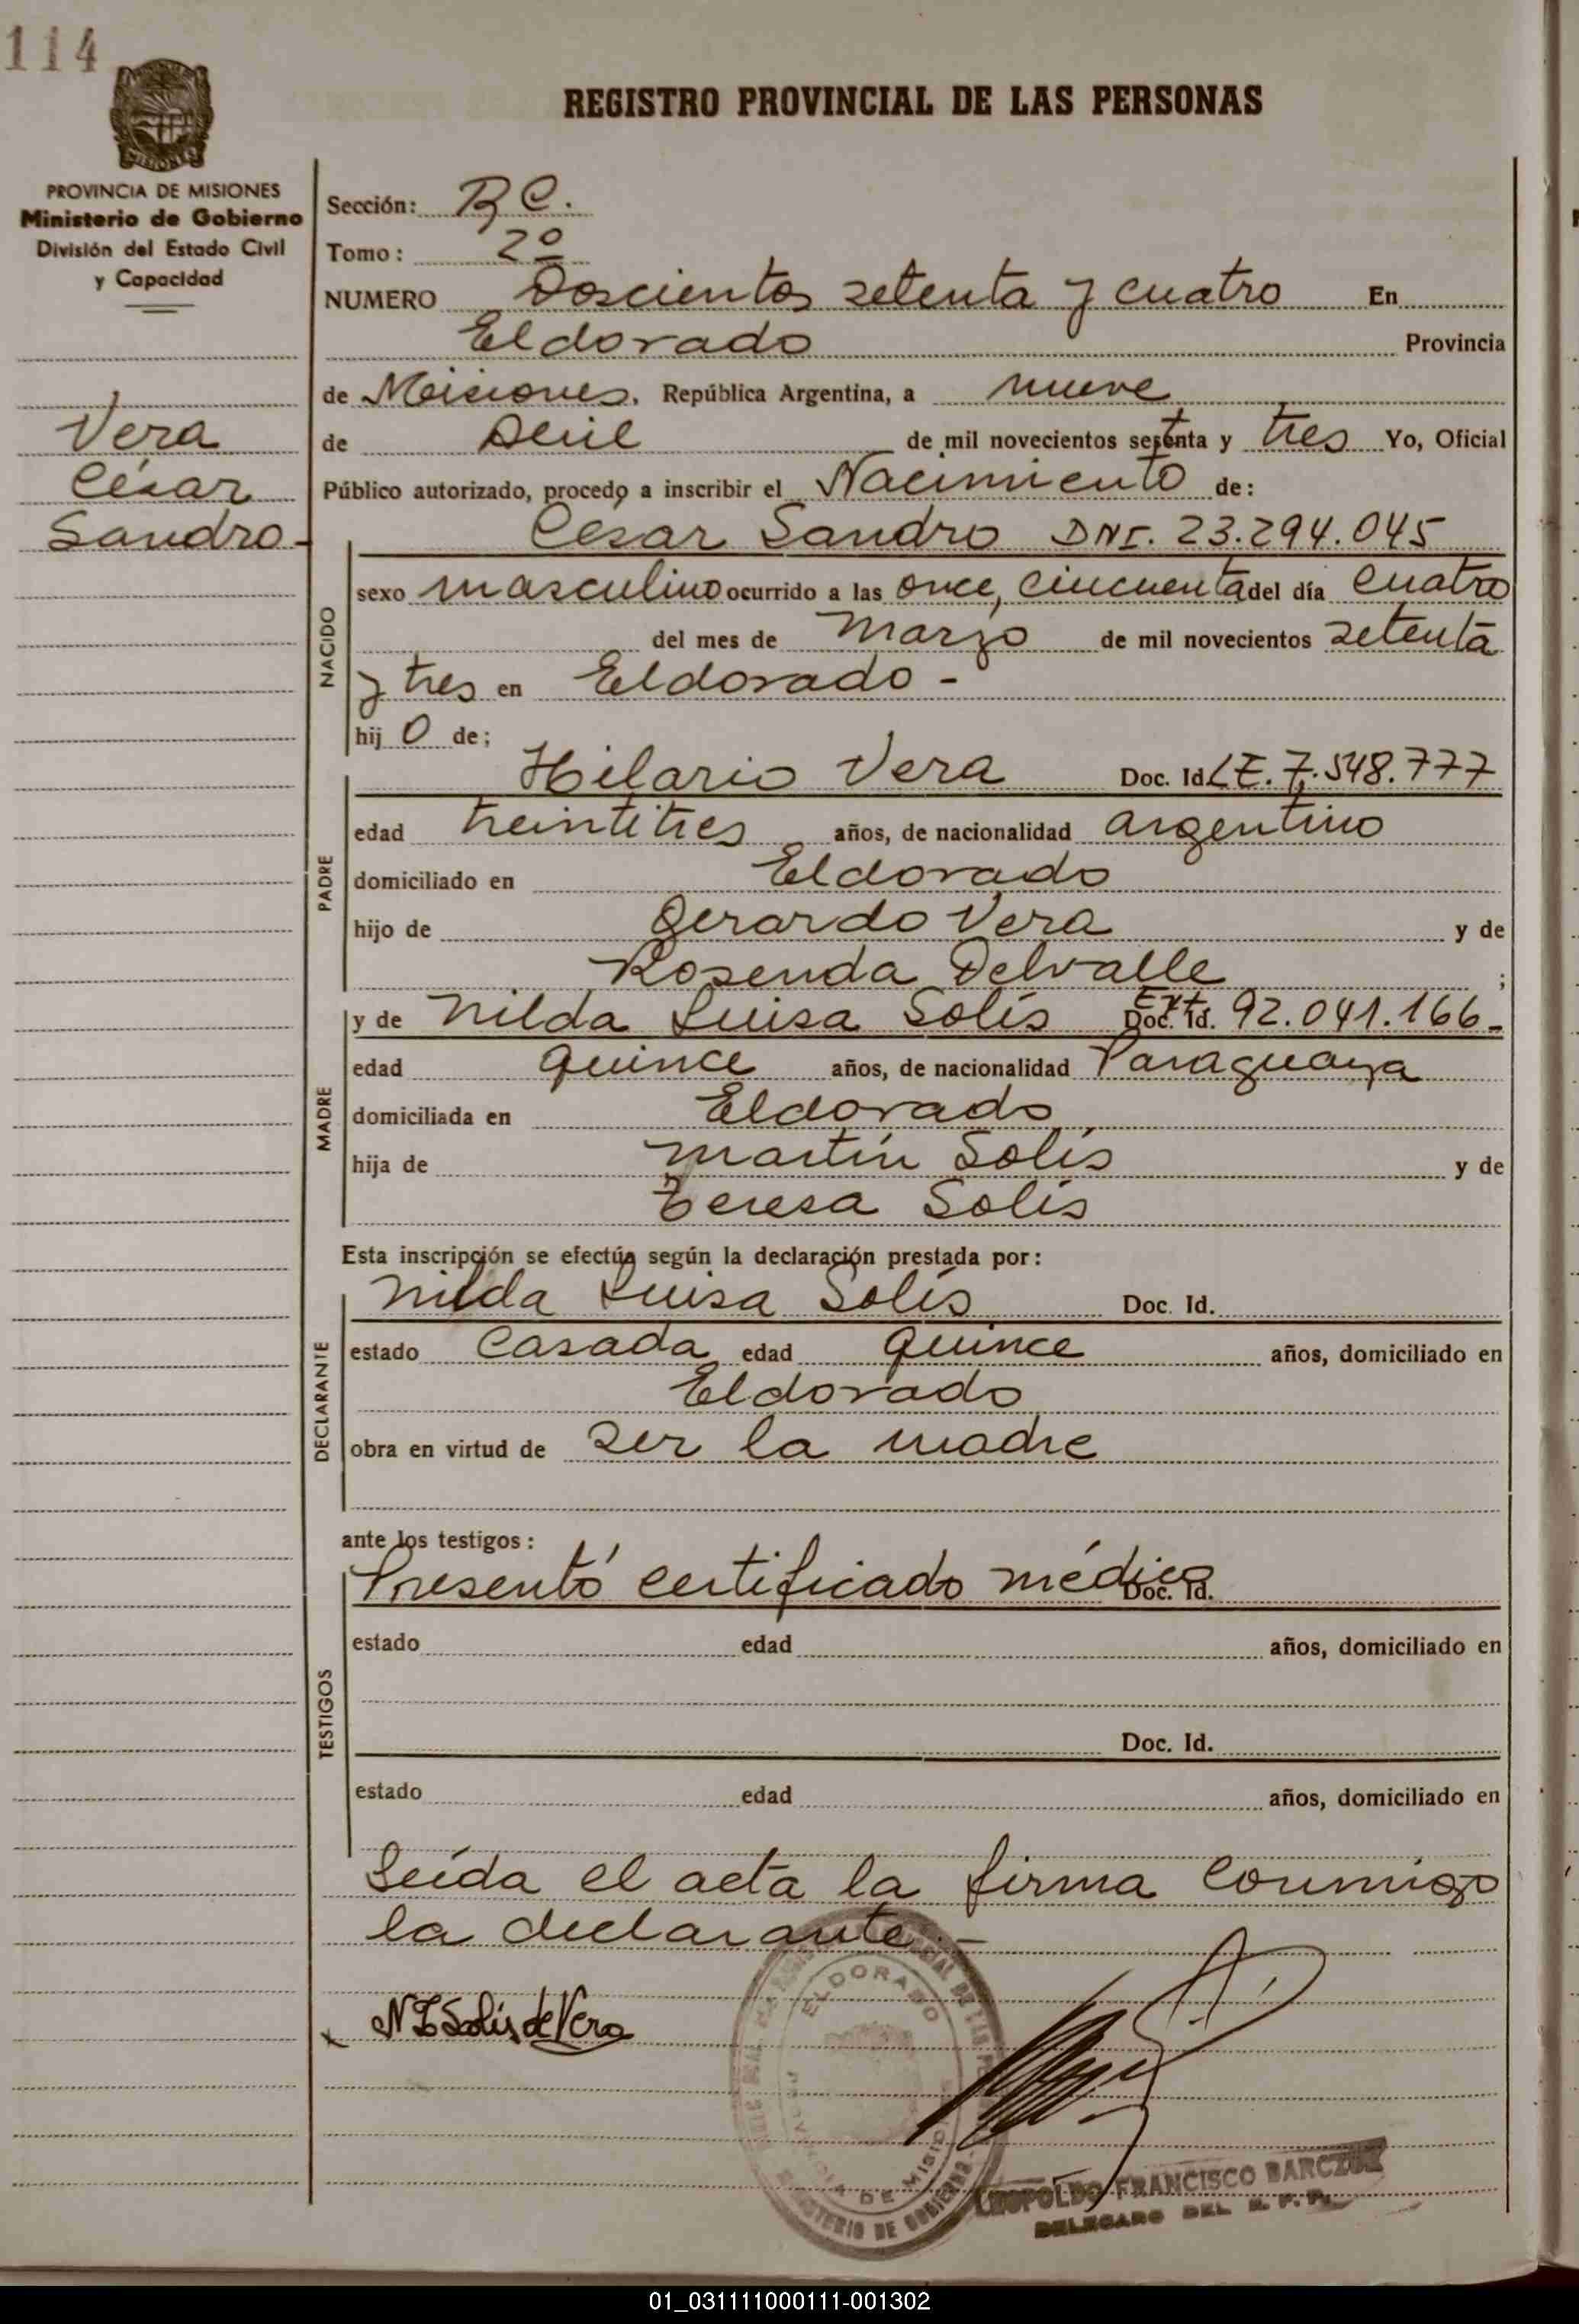 114
MISIONES
PROVINCIA DE MISIONES
Ministerio de Gobierno
División del Estado Civil
y Capacidad
Vera
César
Sandro-
REGISTRO PROVINCIAL DE LAS PERSONAS
Sección: R C.
Tomo: 2º
NUMERO Doscientos setenta y cuatro En
Eldorado Provincia
de Misiones, República Argentina, a nueve
de Abril de mil novecientos setenta y tres Yo, Oficial
Público autorizado, procedo a inscribir el Nacimiento de:
César Sandro DNI. 23.294.045
NACIDO
sexo masculino ocurrido a las once, cincuenta del día cuatro
del mes de marzo de mil novecientos setenta
y tres en Eldorado -
hij o de;
PADRE
Hilario Vera Doc. Id. LE. 7.548.777
edad treintitres años, de nacionalidad argentino
domiciliado en Eldorado
hijo de Gerardo Vera y de
Rosenda Delvalle ;
MADRE
y de Nilda Luisa Solís Ext. Doc. Id. 92.041.166-
edad quince años, de nacionalidad Paraguaya
domiciliada en Eldorado
hija de Martín Solís y de
Teresa Solís
Esta inscripción se efectúa según la declaración prestada por:
DECLARANTE
Nilda Luisa Solís Doc. Id.
estado Casada edad quince años, domiciliado en
Eldorado
obra en virtud de ser la madre
ante los testigos:
TESTIGOS
Presentó certificado médico Doc. Id.
estado edad años, domiciliado en
Doc. Id.
estado edad años, domiciliado en
Leída el acta la firma conmigo
la declarante.-
N L Solis de Vera
ELDORADO
DE MISIONES
MINISTERIO DE GOBIERNO
LEOPOLDO FRANCISCO BARCZUK
DELEGADO DEL R. P. P.
01_031111000111-001302